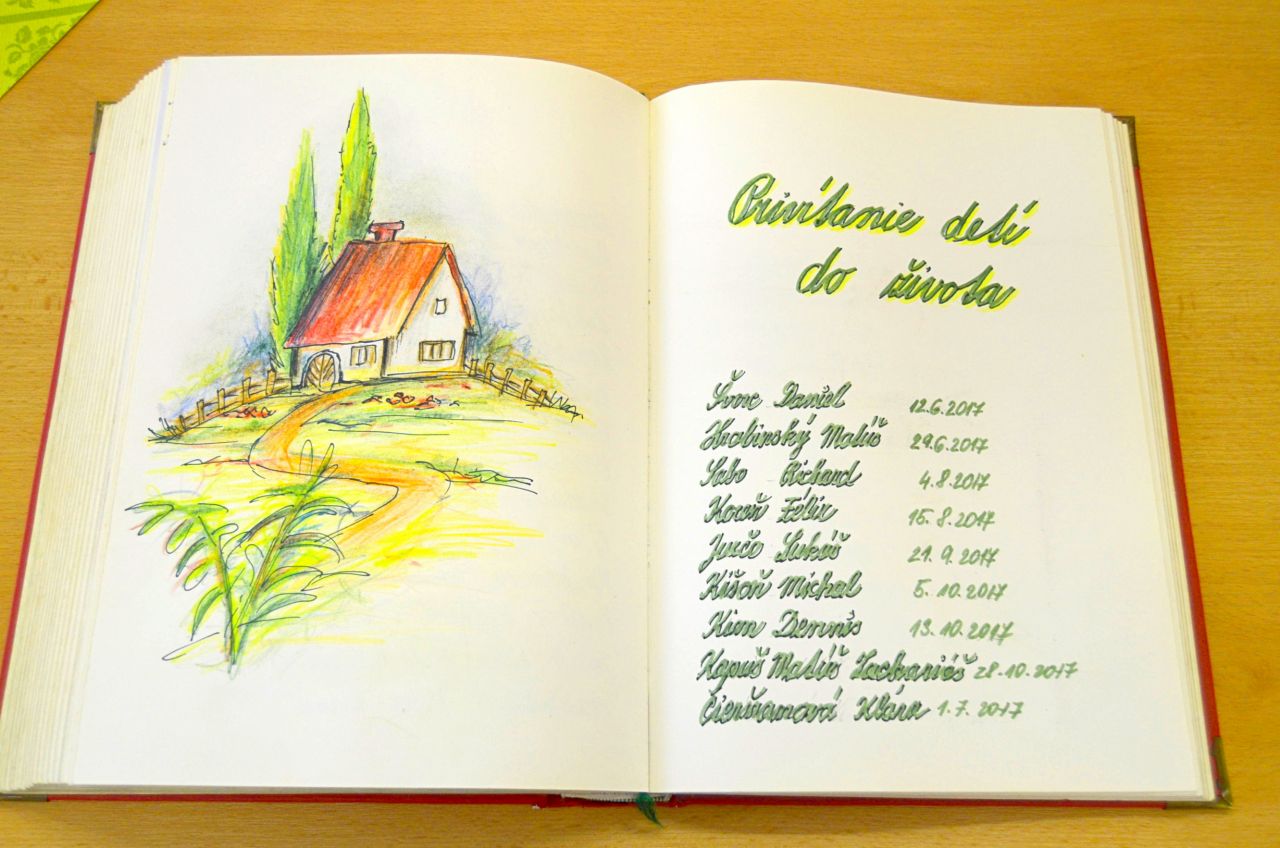 Privítanie detí
do života
Švorc Daniel 12.6.2017
Hrabinský Matúš 29.6.2017
Sabo Richard 4.8.2017
Kovaň Félix 15.8.2017
Jurčo Lukáš 21.9.2017
Kišoň Michal 5.10.2017
Kian Dennis 13.10.2017
Kopuš Matúš Zachariáš 28.10.2017
Klára 1.7.2017